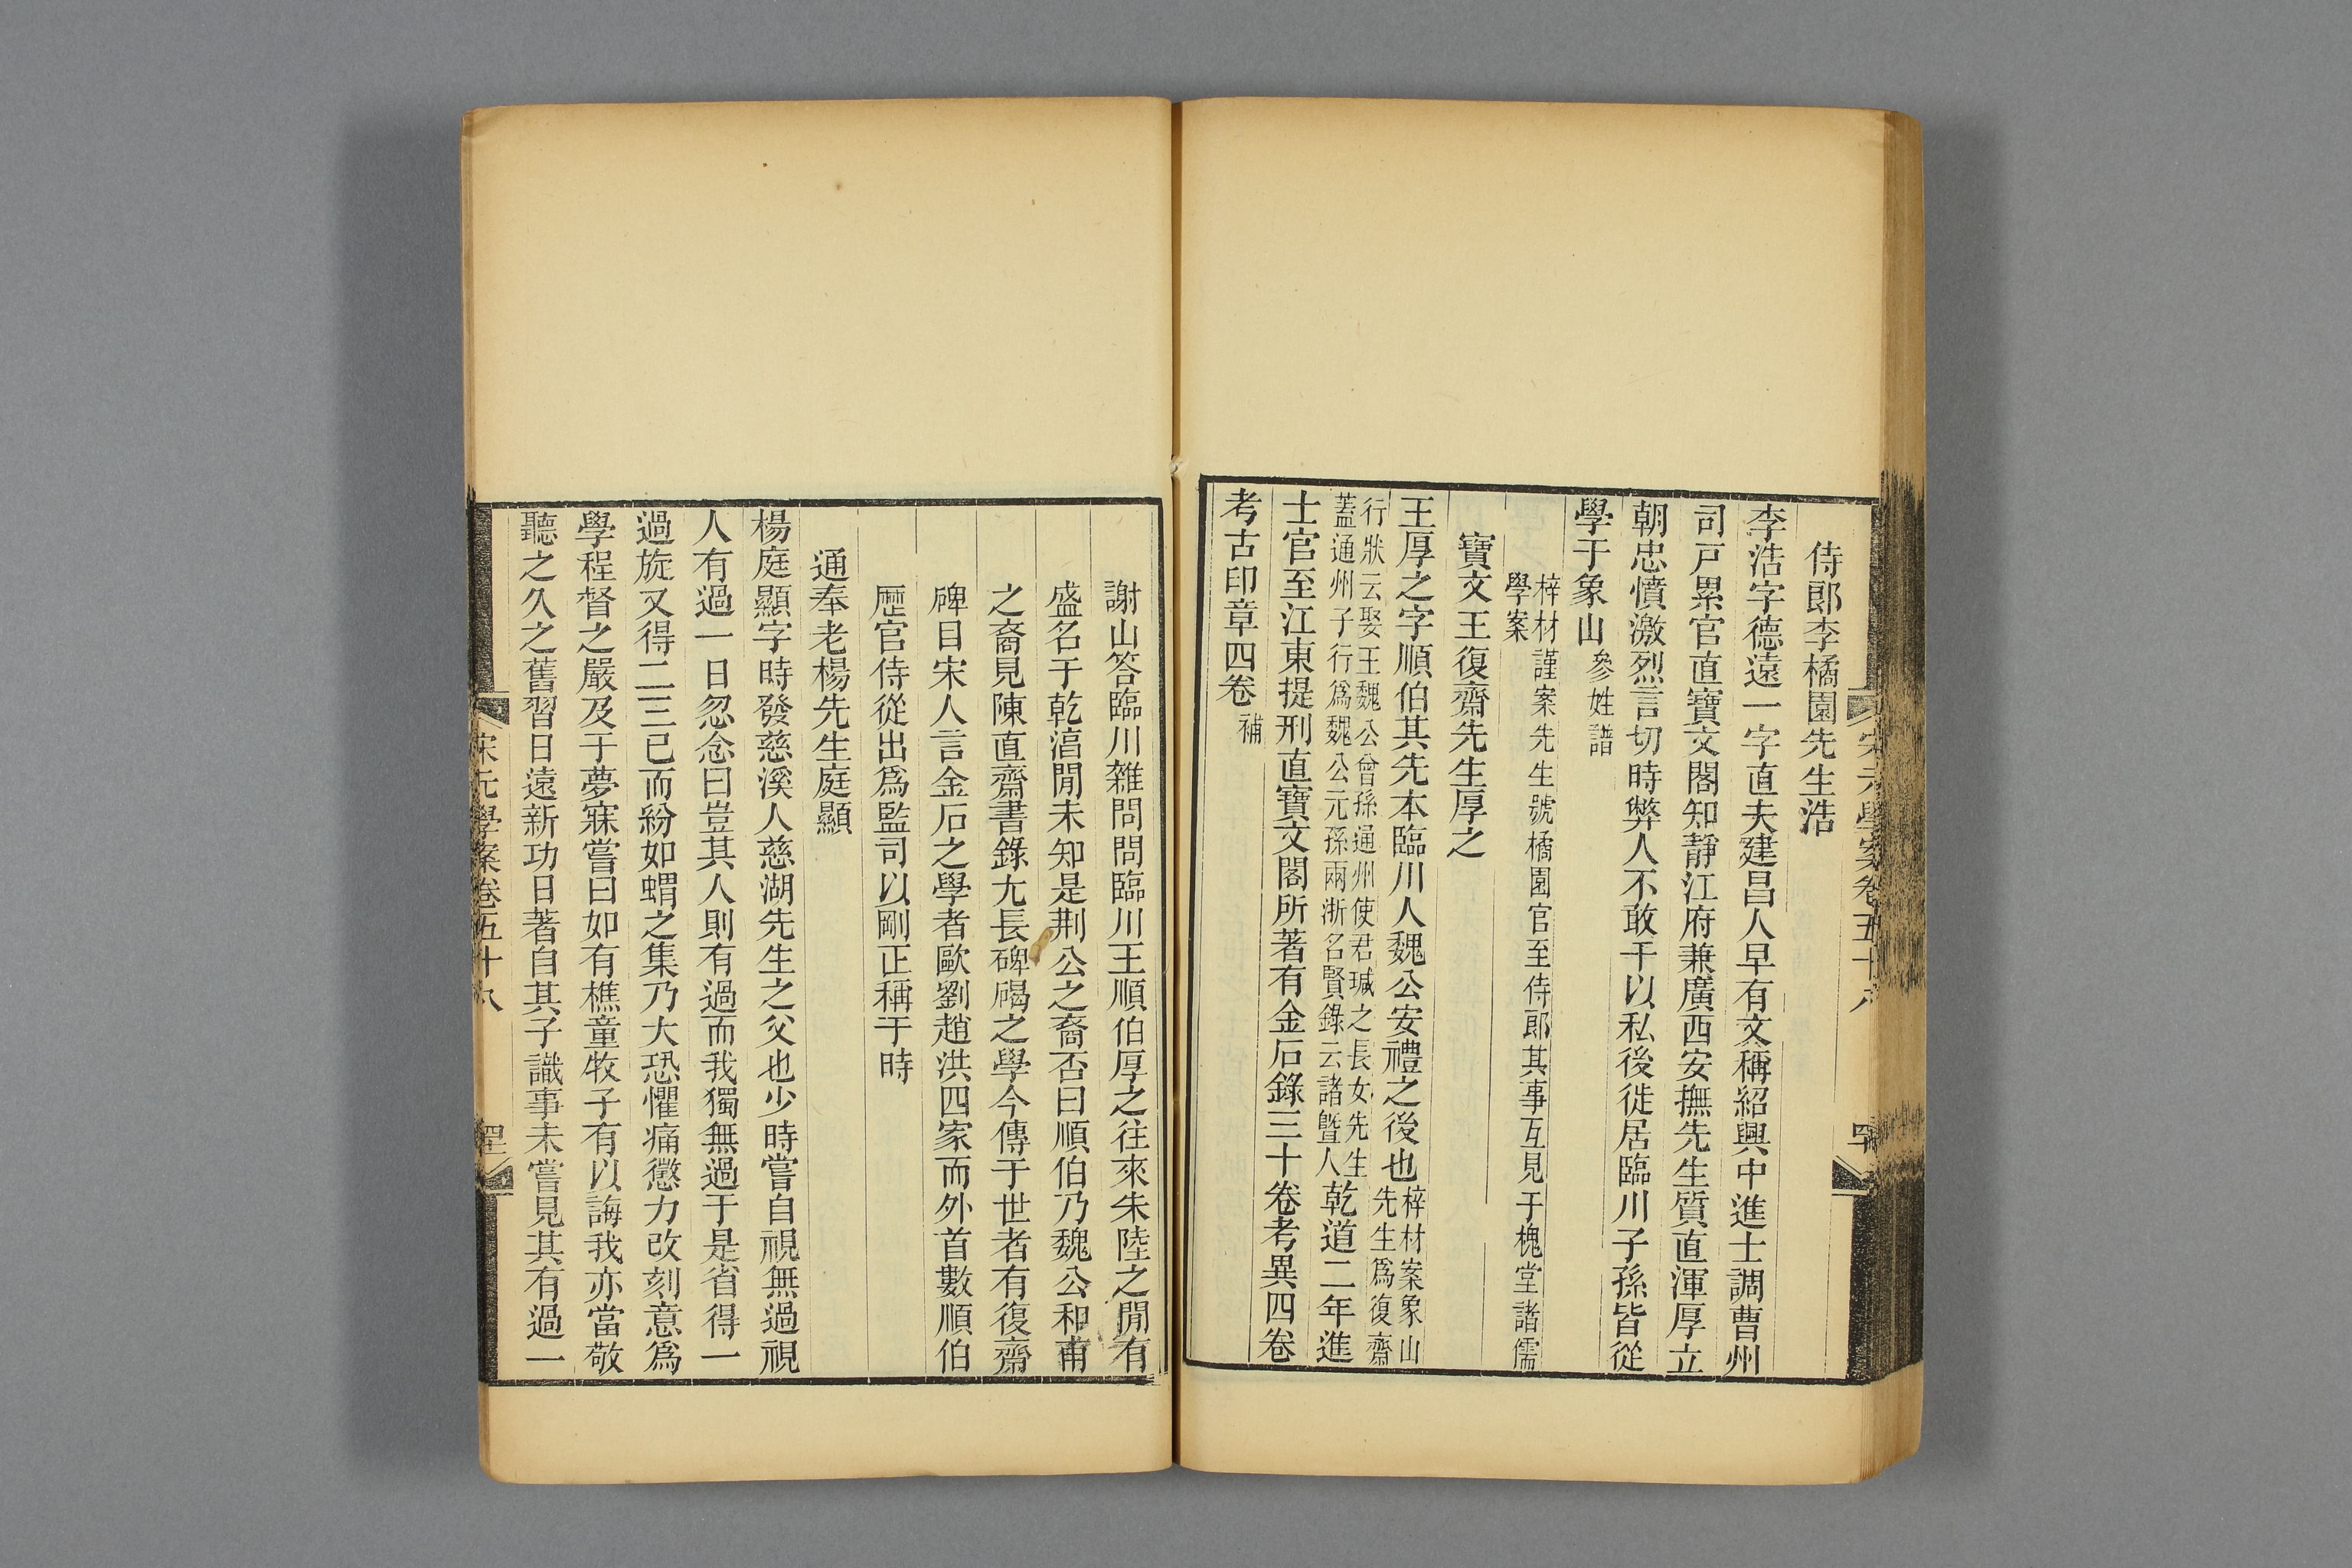 侍郎李橘園先生浩
李浩字德遠一字直夫建昌人早有文稱紹興中進士調曹州
司戸累官直寶文閣知靜江府兼廣西安撫先生質直渾厚立
朝忠憤激烈言切時弊人不敢干以私後徙居臨川子孫皆從
學于象山參姓譜
梓材謹案先生號橘園官至侍郎其事互見于槐堂諸儒
學案
寶文王復齋先生厚之
王厚之字順伯其先本臨川人魏公安禮之後也梓材案象山
先生爲復齋
行狀云娶王魏公曾孫通州使君瑊之長女先生
蓋通州子行爲魏公元孫兩浙名賢錄云諸曁人乾道二年進
士官至江東提刑直寶文閣所著有金石錄三十卷考異四卷
考古印章四卷補
謝山答臨川雜問問臨川王順伯厚之往來朱陸之閒有
盛名于乾湻閒未知是荆公之裔否曰順伯乃魏公和甫
之裔見陳直齋書錄尢長碑碣之學今傳于世者有復齋
碑目宋人言金石之學者歐劉趙洪四家而外首數順伯
歷官侍從出爲監司以剛正稱于時
通奉老楊先生庭顯
楊庭顯字時發慈溪人慈湖先生之父也少時嘗自視無過視
人有過一日忽念曰豈其人則有過而我獨無過于是省得一
過旋又得二三已而紛如蝟之集乃大恐懼痛懲力改刻意爲
學程督之嚴及于夢寐嘗曰如有樵童牧子有以誨我亦當敬
聽之久之舊習日遠新功日著自其子識事未嘗見其有過一
宋元學案卷五十八